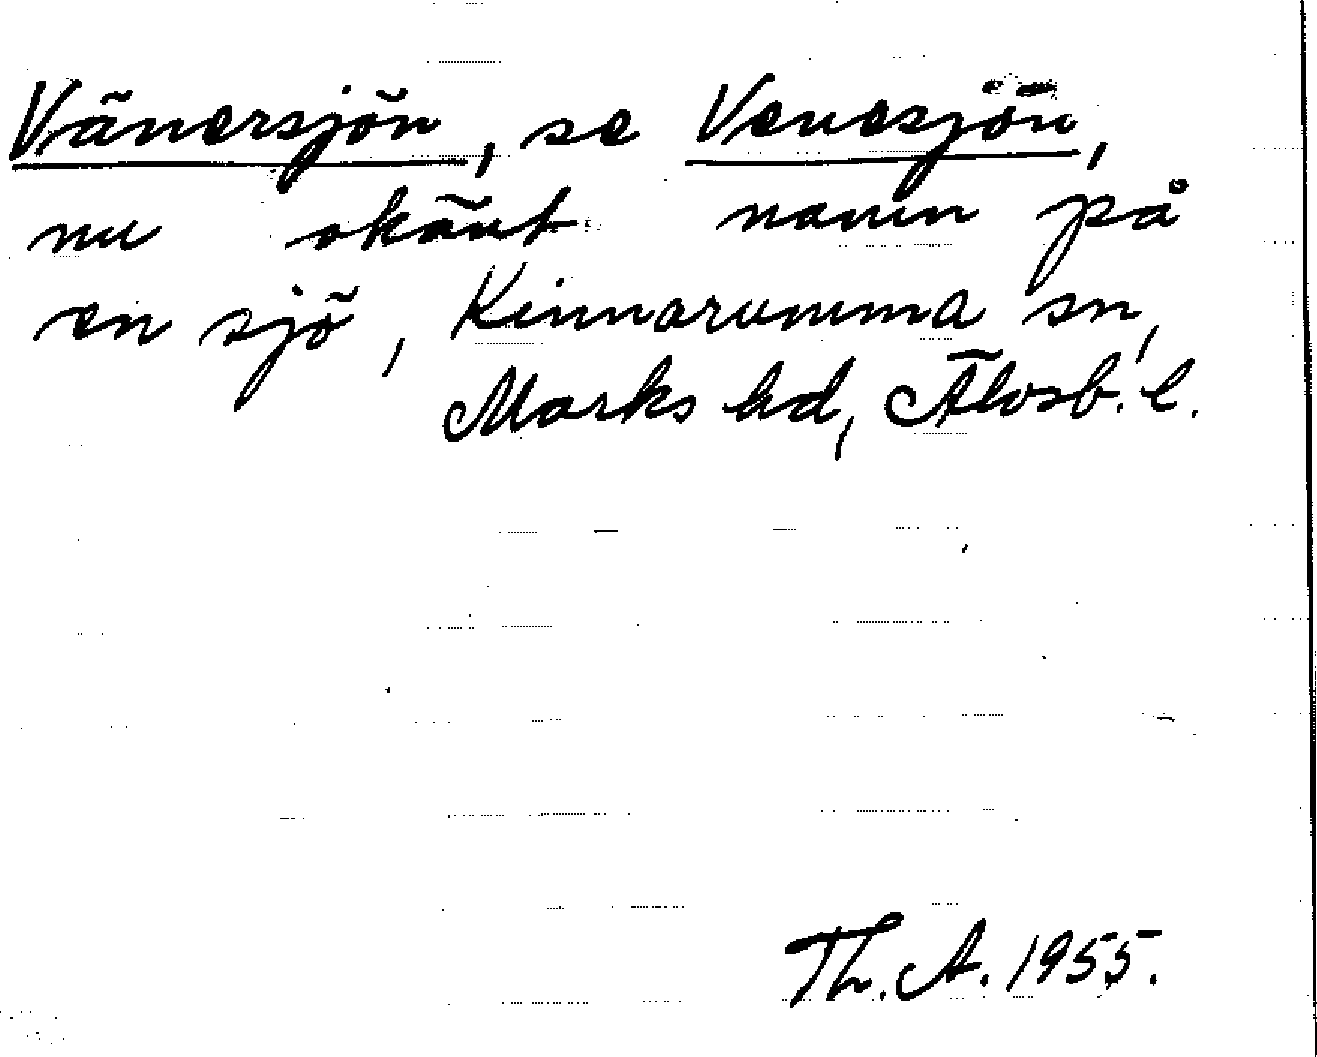 Vänersjön, se Venesjön,
nu okänt namn på
en sjö, Kinnarumma sn,
Marks hd, Älvsb. l.
Th. A. 1955.